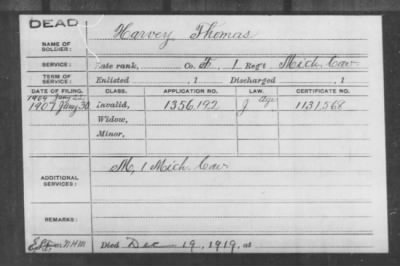 DEAD
NAME OF SOLDIER: Harvey Thomas
SERVICE: Late rank, Co. H 1 Reg't Mich. Cav.
TERM OF SERVICE: Enlisted , 1 Discharged , 1
DATE OF FILING. CLASS. APPLICATION NO. LAW. CERTIFICATE NO.
1904 Jany 22
1907 Jany 30 Invalid, 1356,192 J Age 1131,568
Widow,
Minor,
ADDITIONAL SERVICES: M, 1 Mich. Cav
REMARKS:
Died Dec 19, 1919, at